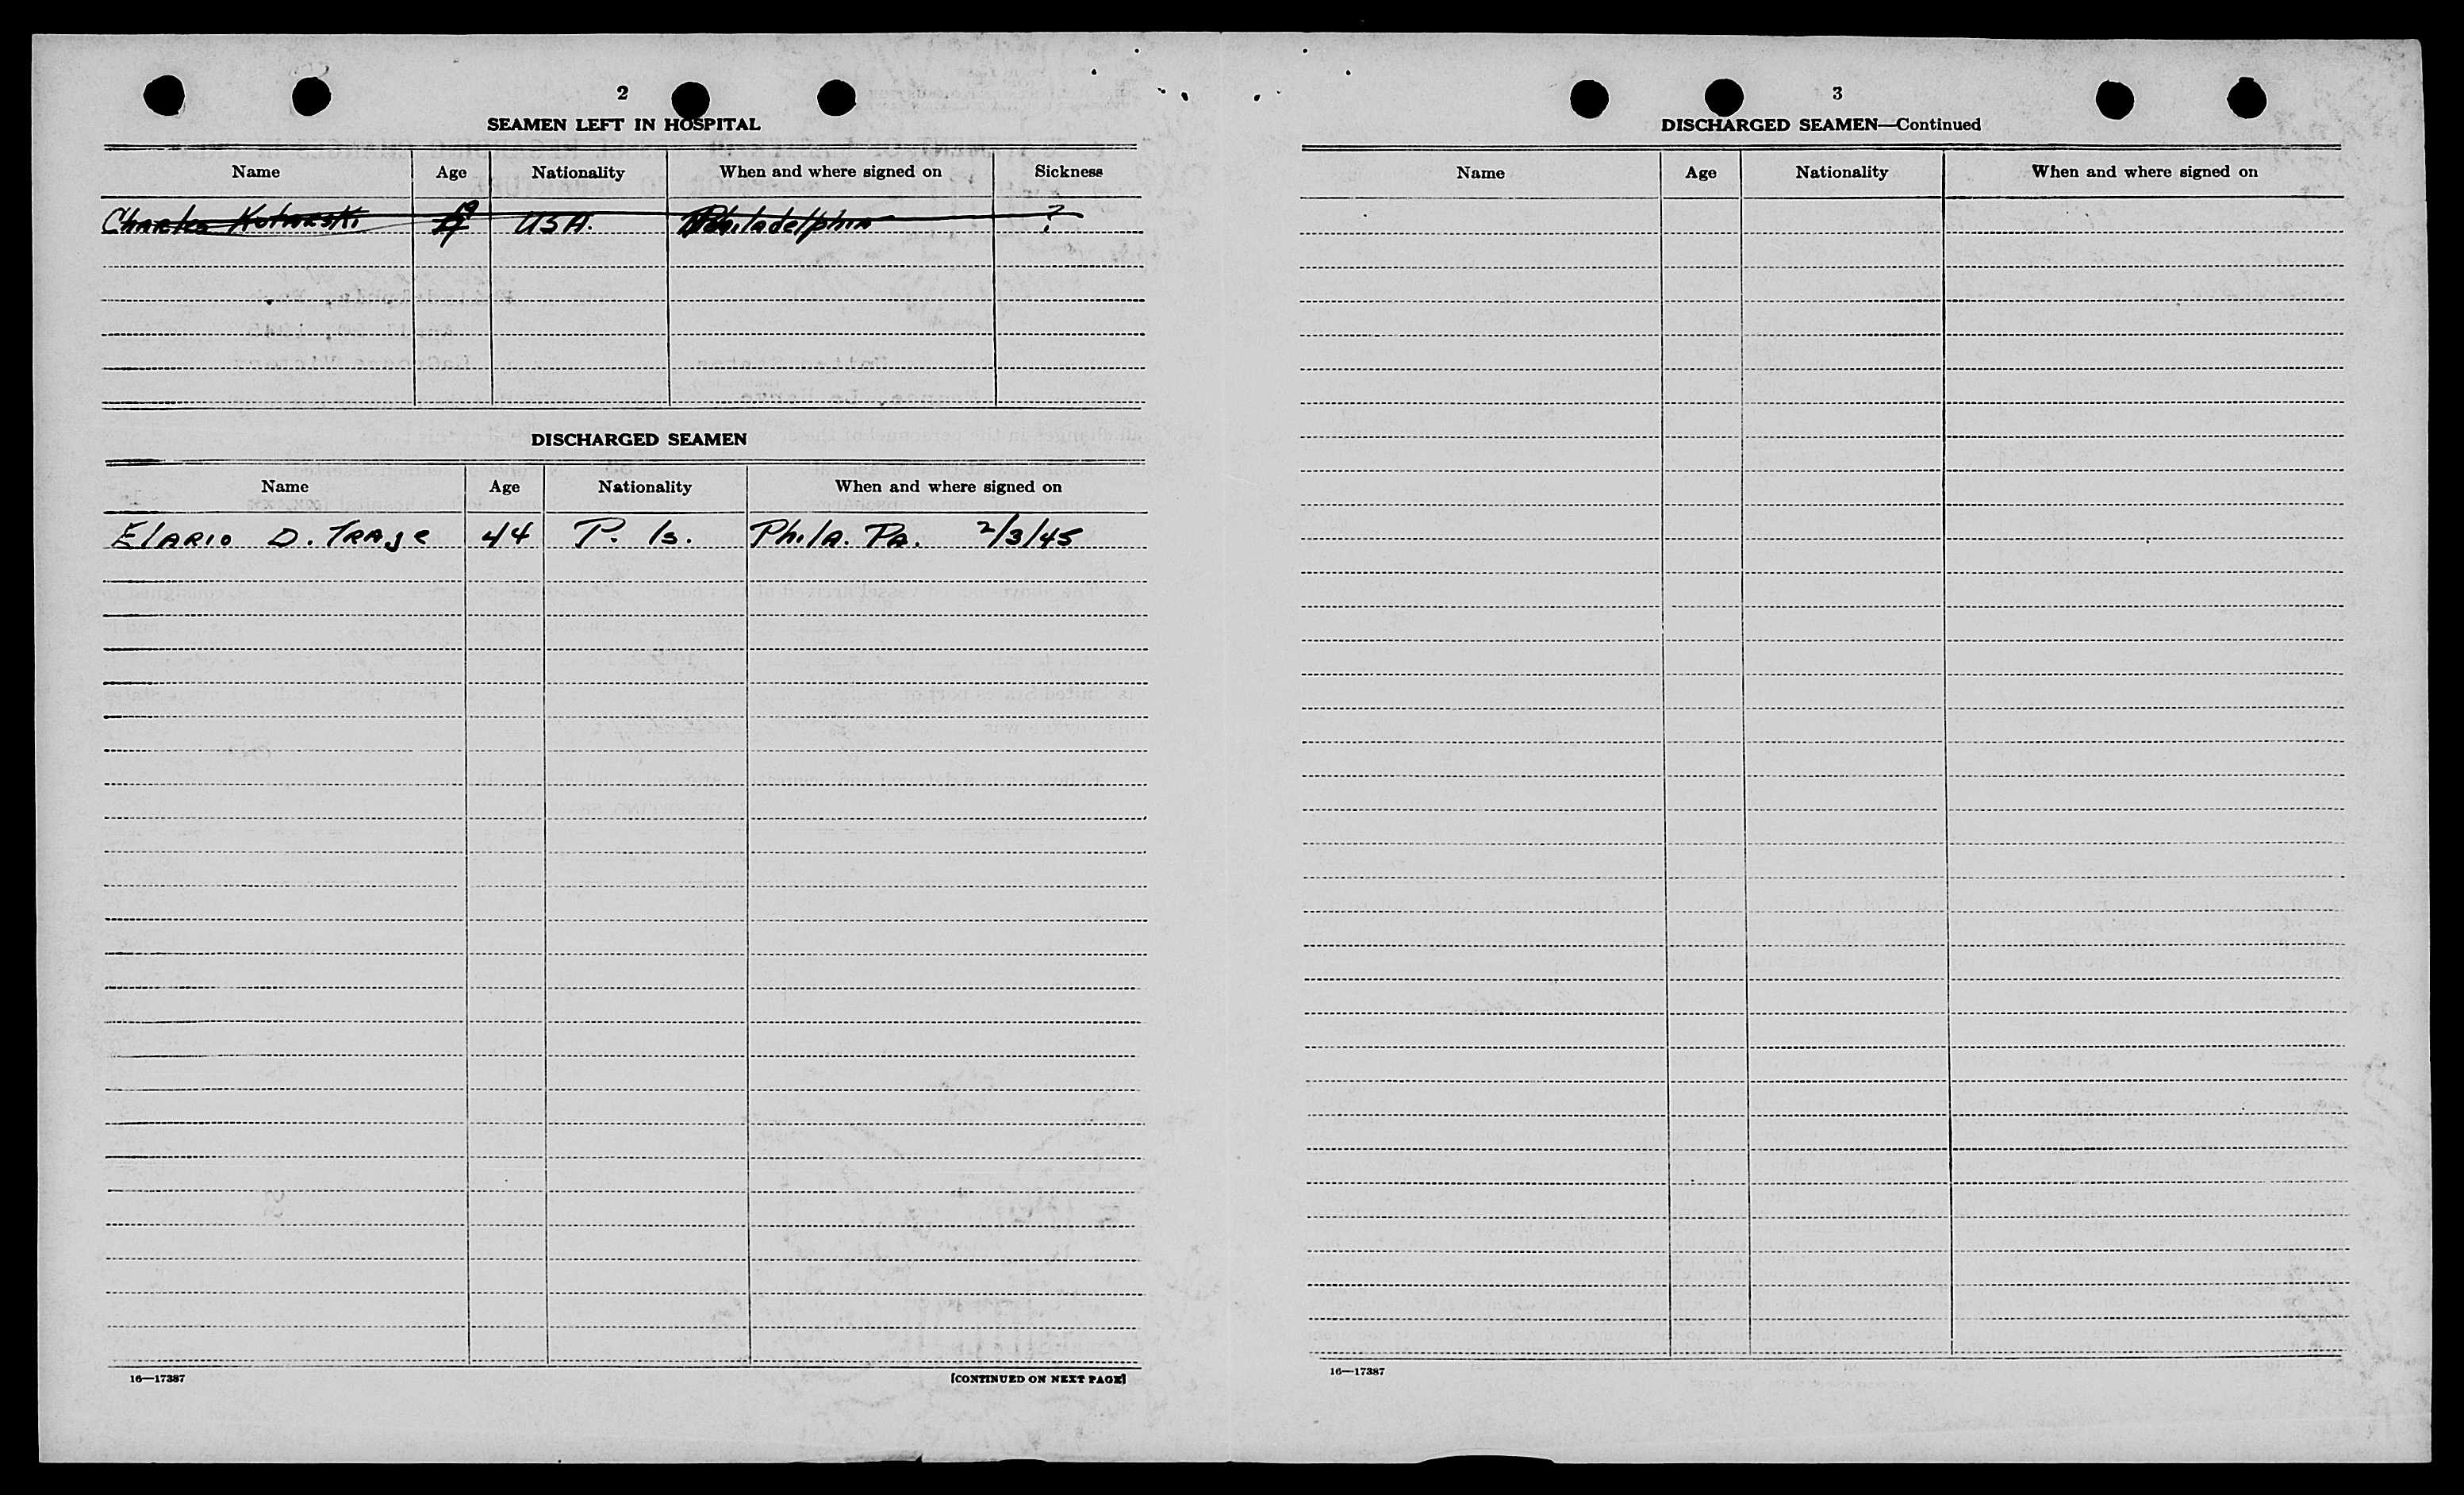 2
SEAMEN LEFT IN HOSPITAL
Name Age Nationality When and where signed on Sickness
Charles 19 USA. Philadelphia ?
DISCHARGED SEAMEN
Name Age Nationality When and where signed on
Elario D. Traje 44 P. Is. Phila. Pa. 2/3/45
16—17387 [CONTINUED ON NEXT PAGE]
3
DISCHARGED SEAMEN—Continued
Name Age Nationality When and where signed on
16—17387